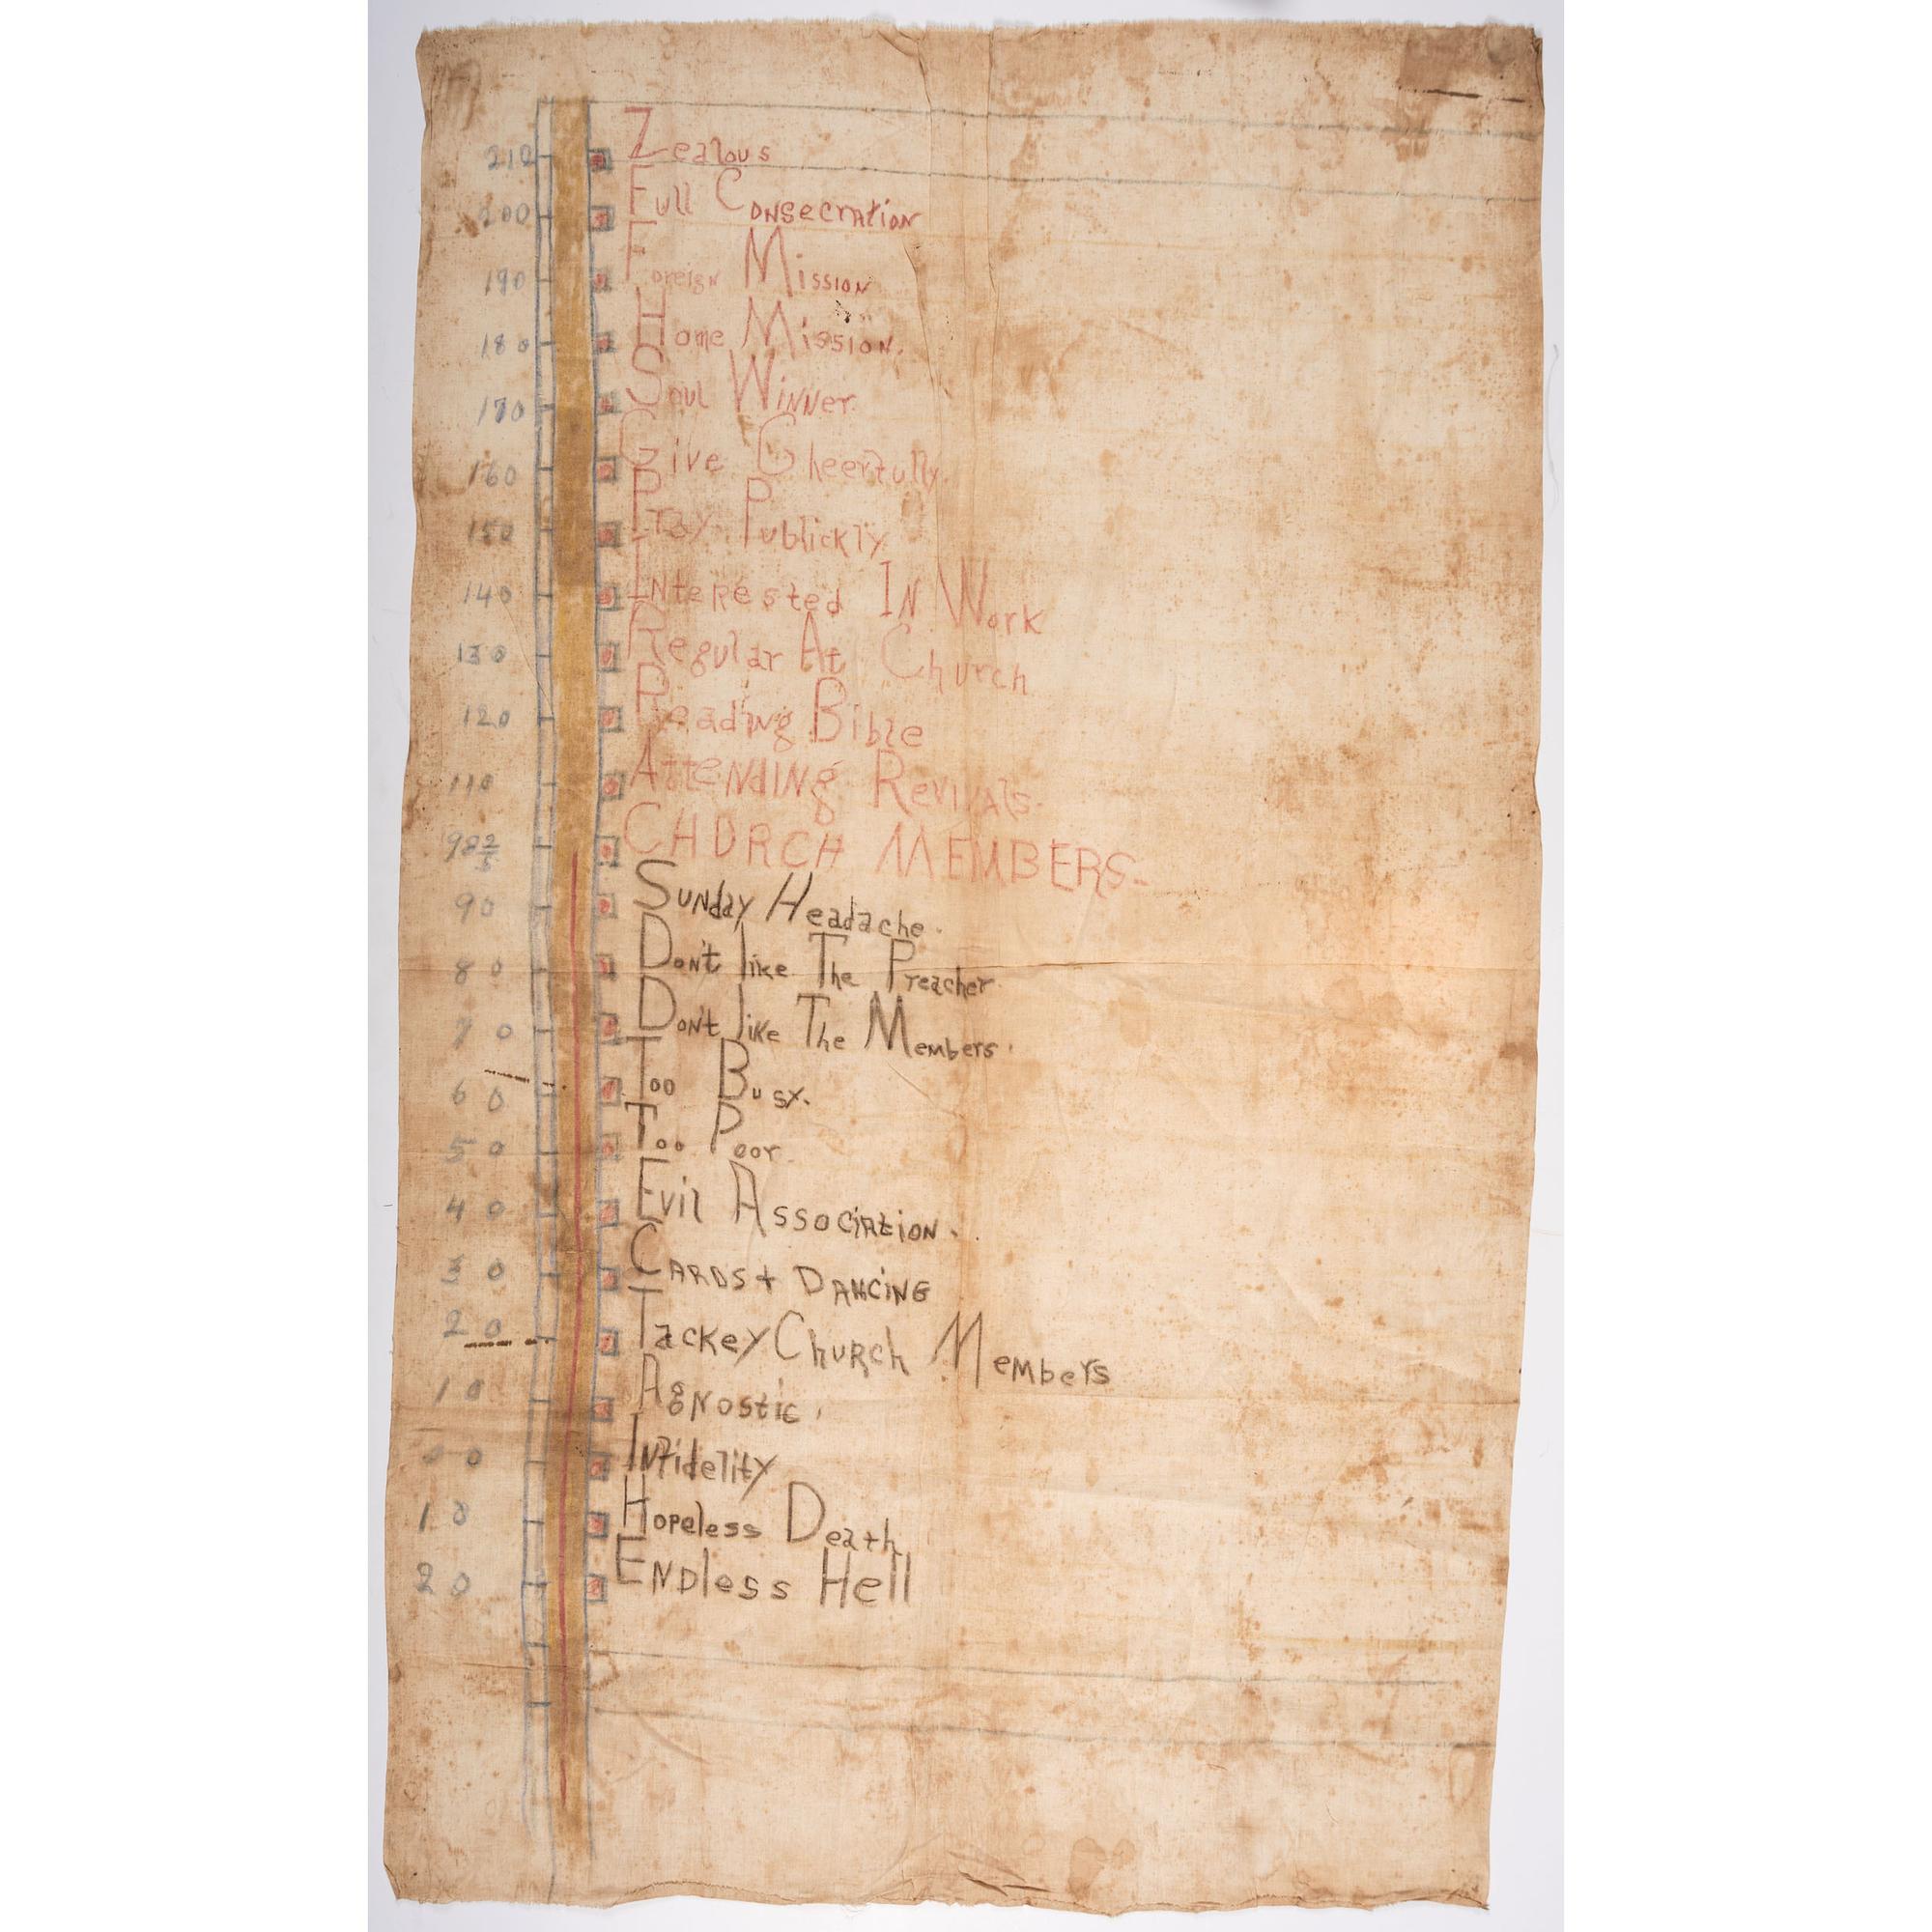 210 Zealous
200 Full Consecration
190 Foreign Mission
180 Home Mission.
170 Soul Winner.
160 Give Cheerfully.
150 Pray Publickly
140 Interested In Work
130 Regular At Church
120 Reading Bible
110 Attending Revivals.
98 2/5 CHURCH MEMBERS-
90 Sunday Headache.
80 Don't like The Preacher
70 Don't like The Members.
60 Too Busy.
50 Too Poor.
40 Evil Association.
30 Cards + Dancing
20 Tackey Church Members
10 Agnostic.
00 Infidelity
10 Hopeless Death
20 Endless Hell